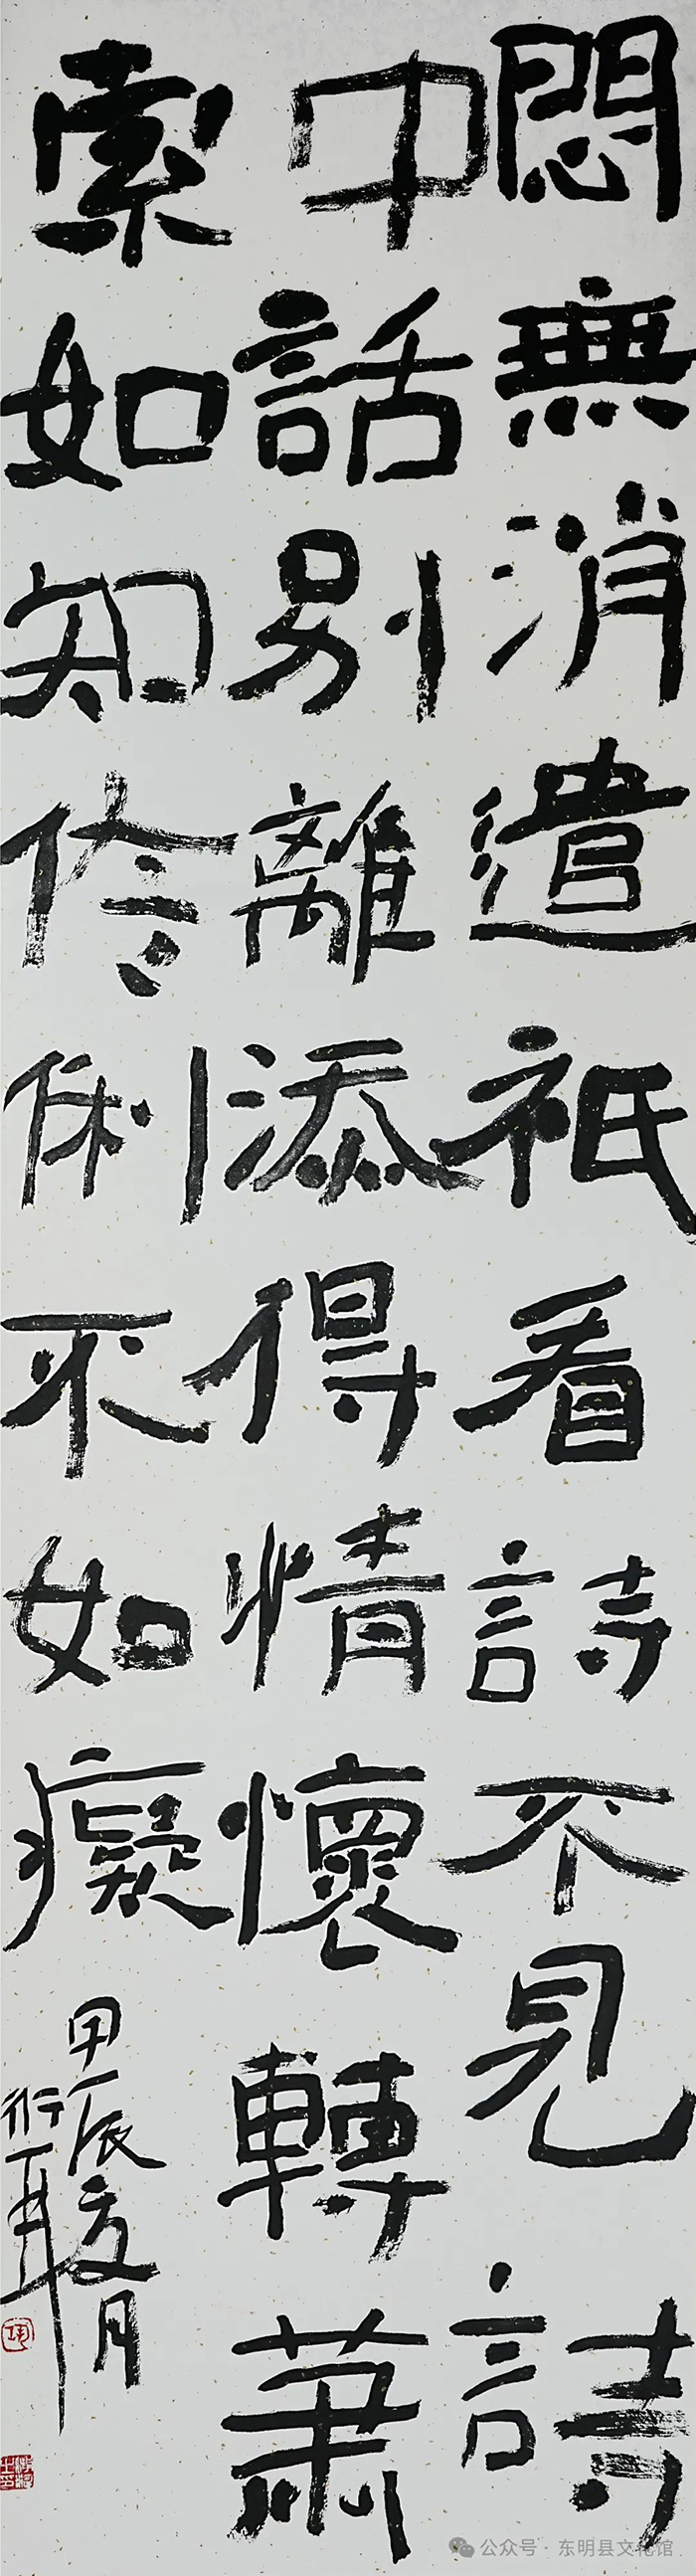 悶無消遣祇看詩不見詩
中話別離添得情懷轉蕭
索如知伶俐不如癡
甲辰夏月
公众号·东明县文化馆